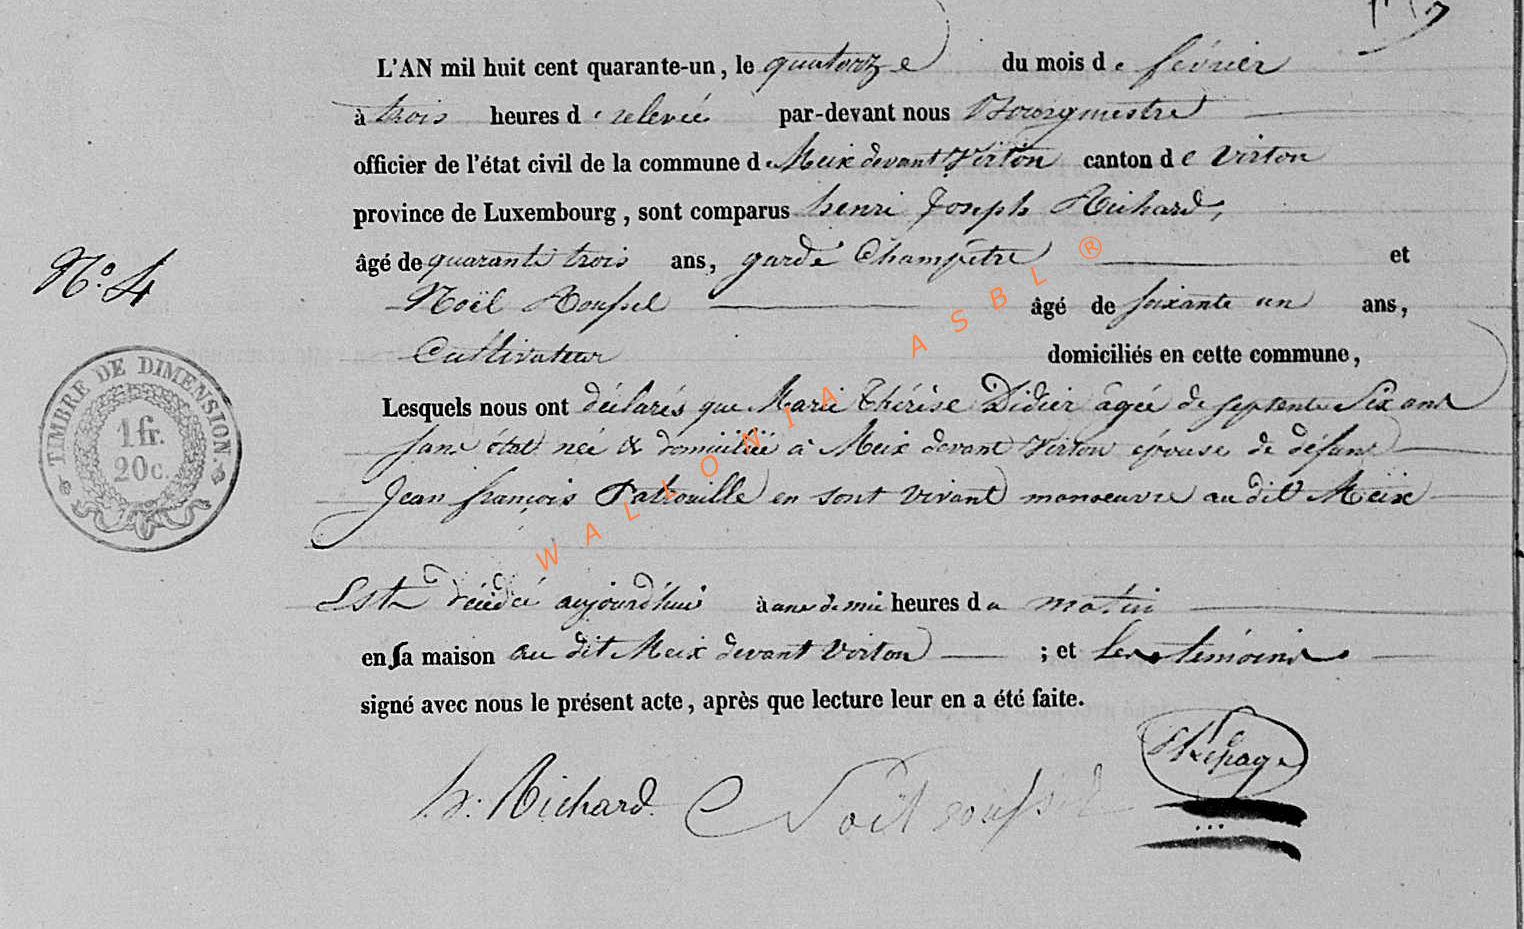 L'AN mil huit cent quarante-un, le quatorze du mois de février
à trois heures de relevée par-devant nous Bourgmestre
officier de l'état civil de la commune de Meix devant Virton canton de Virton
province de Luxembourg, sont comparus henri Joseph Richard,
âgé de quarante trois ans, garde Champêtre et
N.º 4
Noël Roussel âgé de soixante un ans,
Cultivateur domiciliés en cette commune,
Lesquels nous ont déclarés que Marie Thérèse Didier agée de septente Six ans
sans état née & domiciliée à Meix devant Virton épouse de défunt
Jean françois Patrouille en sont vivant manoeuvre au dit Meix
Est décédée aujourd'hui à une demie heures du matin
en sa maison au dit Meix devant Virton ; et les témoins
signé avec nous le présent acte, après que lecture leur en a été faite.
h. Richard Noël roussel Lepage
TIMBRE DE DIMENSION
1 fr.
20 c.
WALLONIA ASBL ®